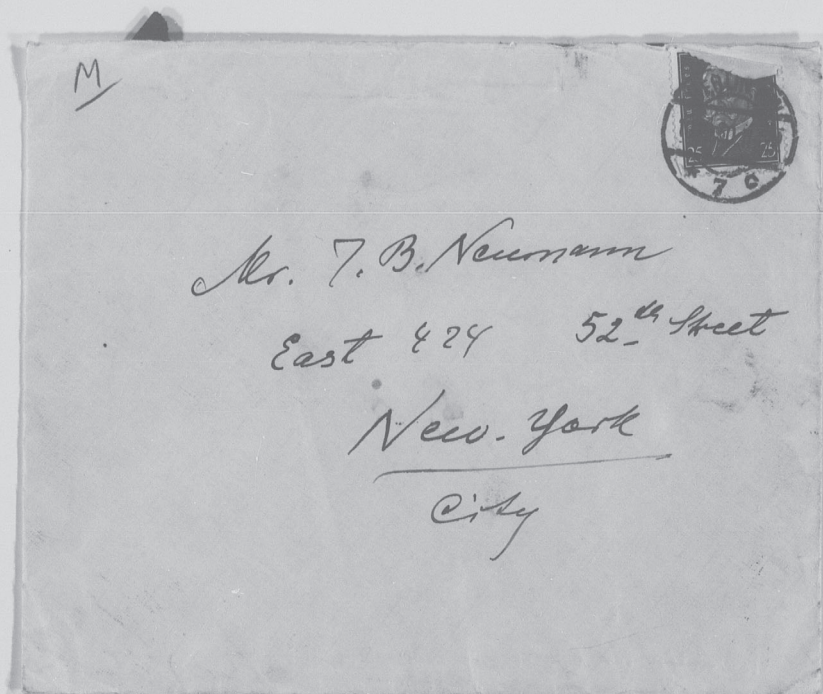 M
25 25
7 c
Mr. J. B. Neumann
East 424 52th Street
New-York
City